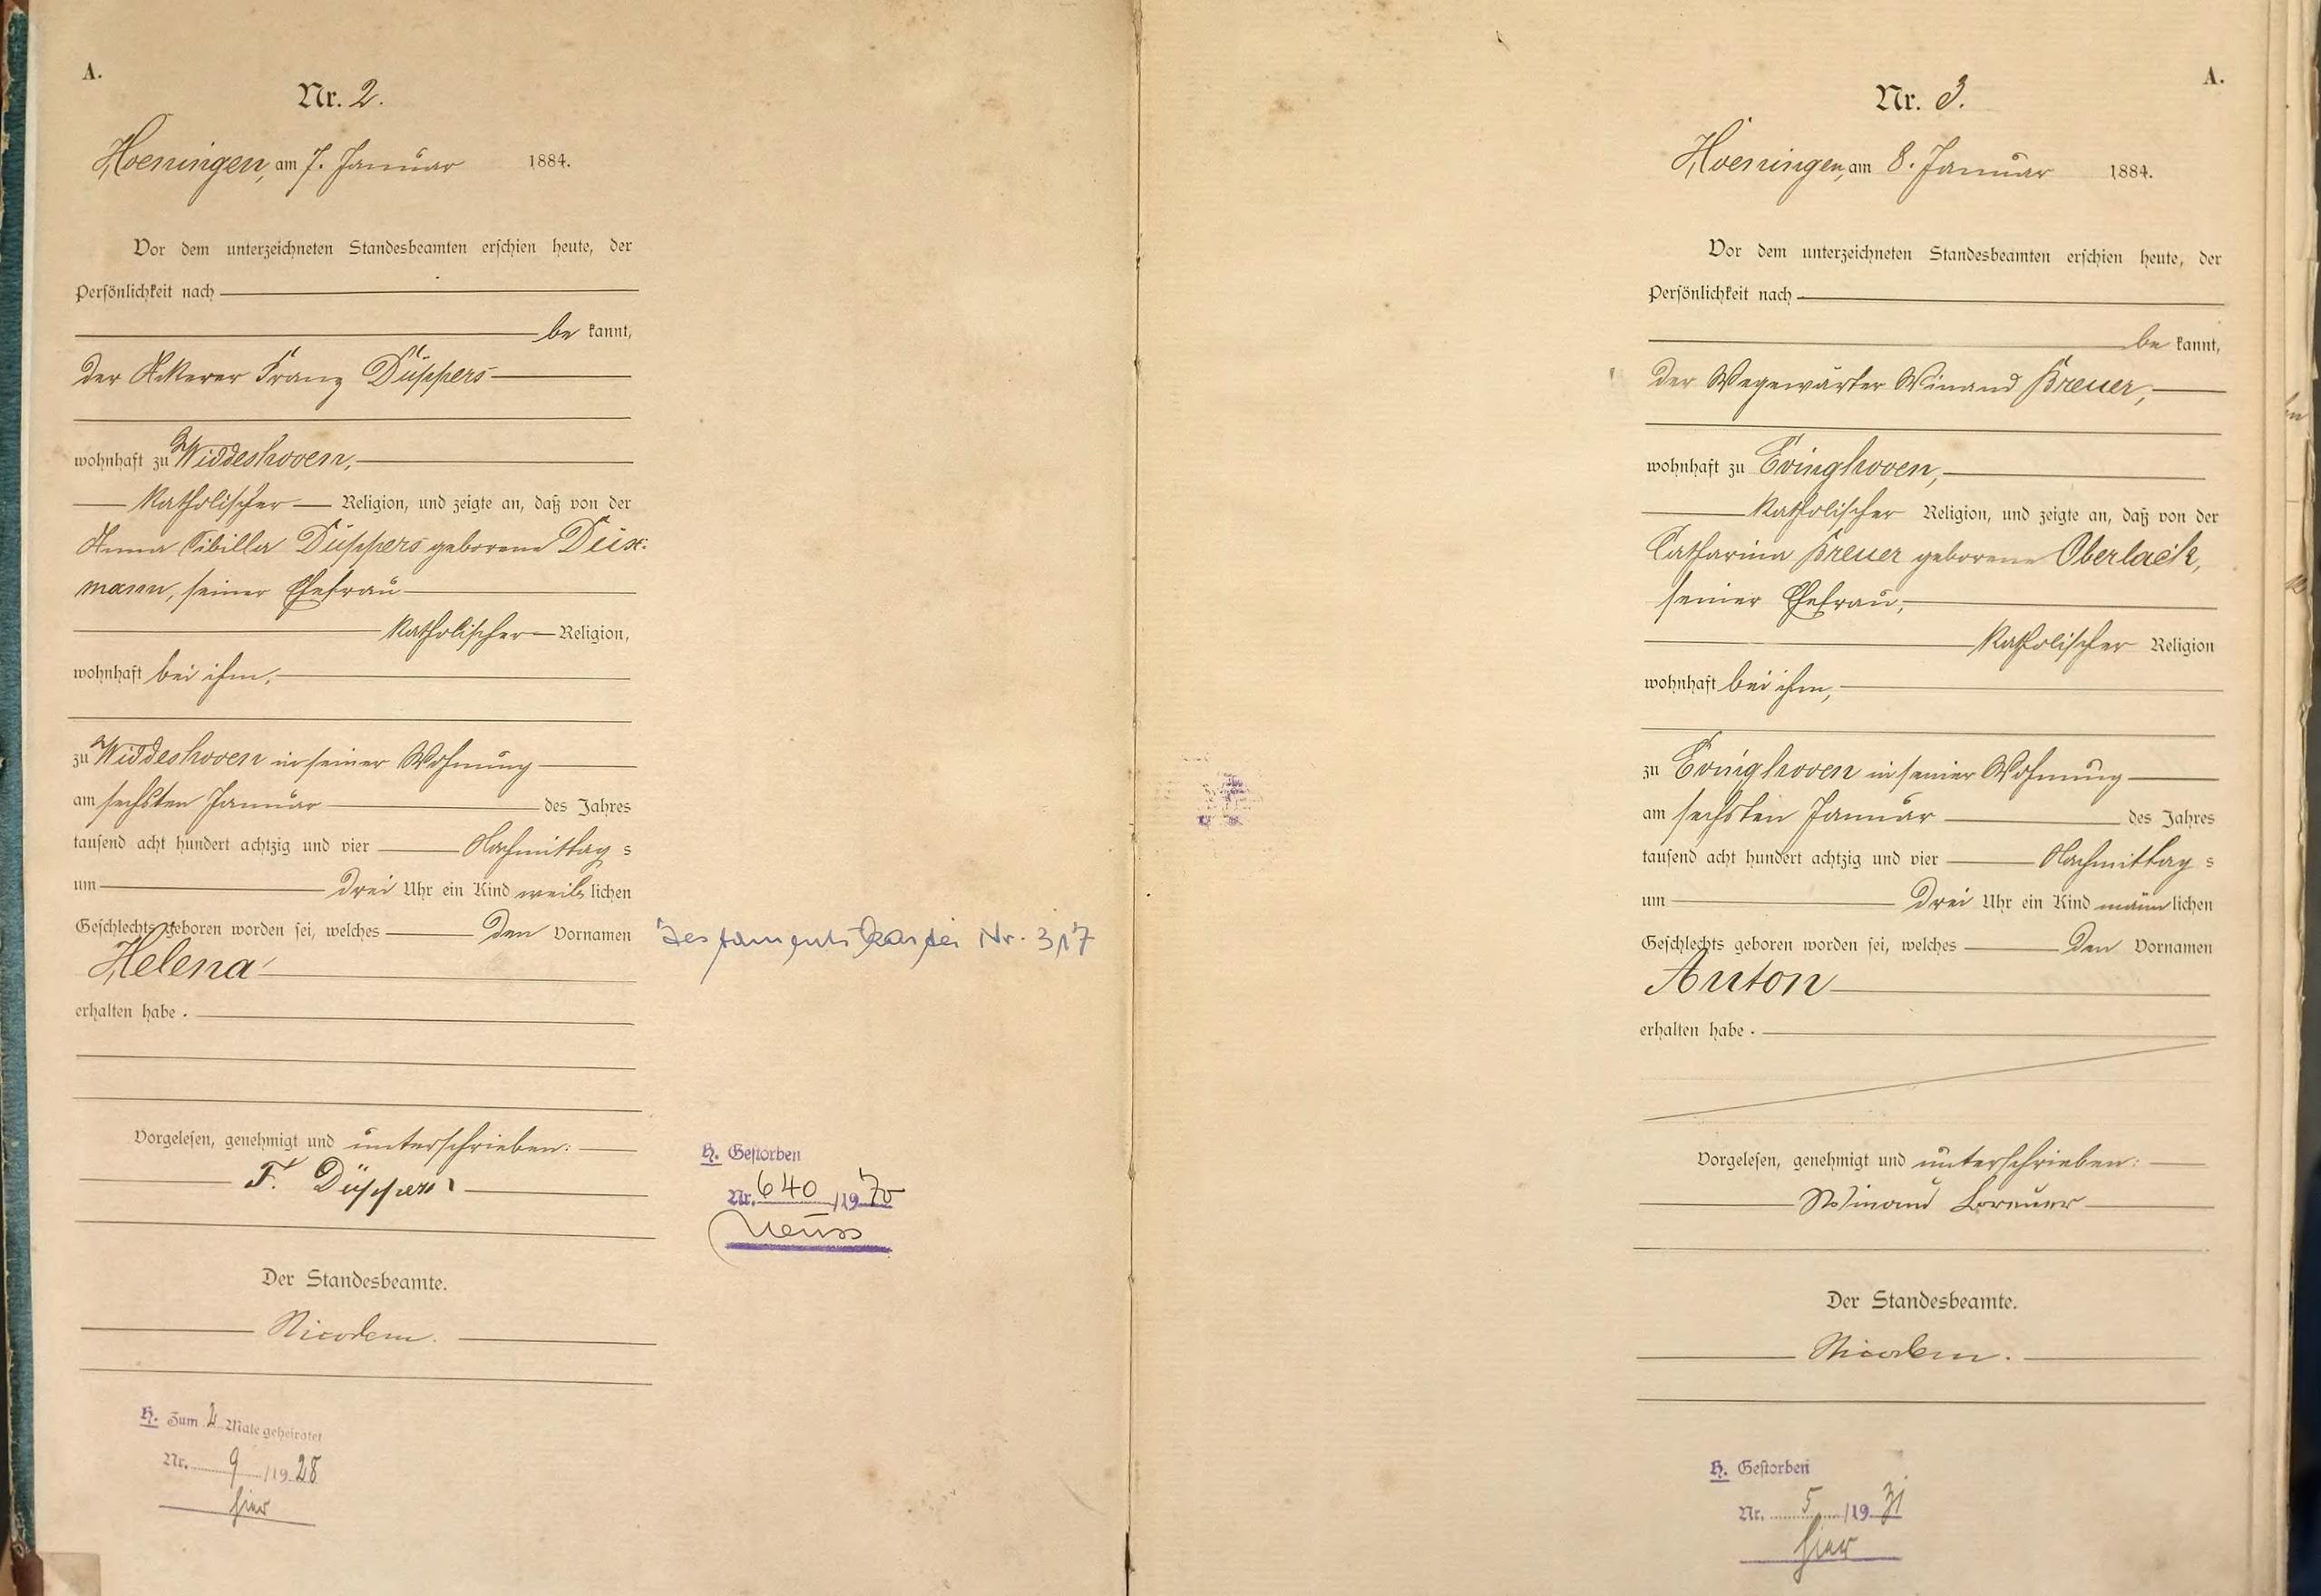 A.
Nr. 2.
Hoeningen, am 7. Januar 1884.
Vor dem unterzeichneten Standesbeamten erschien heute, der
Persönlichkeit nach
be kannt,
der Ackerer Franz Düppers
wohnhaft zu Widdeshoven,
katholischer Religion, und zeigte an, daß von der
Anna Sibilla Düppers geborene Deix-
mann, seiner Ehefrau
katholischer Religion,
wohnhaft bei ihm,
zu Widdeshoven in seiner Wohnung
am sechsten Januar des Jahres
tausend acht hundert achtzig und vier Nachmittag s
um drei Uhr ein Kind weib lichen
Geschlechts geboren worden sei, welches den Vornamen
Helena
erhalten habe.
Vorgelesen, genehmigt und unterschrieben:
F. Düppers
Der Standesbeamte.
Nicodem.
H. Zum 2 Male geheiratet
Nr. 9 /1928
hier
Testamentskartei Nr. 317
H. Gestorben
Nr. 640 /1970
Neuss
A.
Nr. 3.
Hoeningen, am 8. Januar 1884.
Vor dem unterzeichneten Standesbeamten erschien heute, der
Persönlichkeit nach
be kannt,
der Wegewärter Winand Breuer,
wohnhaft zu Evinghoven,
katholischer Religion, und zeigte an, daß von der
Catharina Breuer geborene Oberlack,
seiner Ehefrau,
katholischer Religion
wohnhaft bei ihm,
zu Evinghoven in seiner Wohnung
am sechsten Januar des Jahres
tausend acht hundert achtzig und vier Nachmittag s
um drei Uhr ein Kind männ lichen
Geschlechts geboren worden sei, welches den Vornamen
Anton
erhalten habe.
Vorgelesen, genehmigt und unterschrieben:
Winand Breuer
Der Standesbeamte.
Nicodem.
H. Gestorben
Nr. 5 /1931
hier